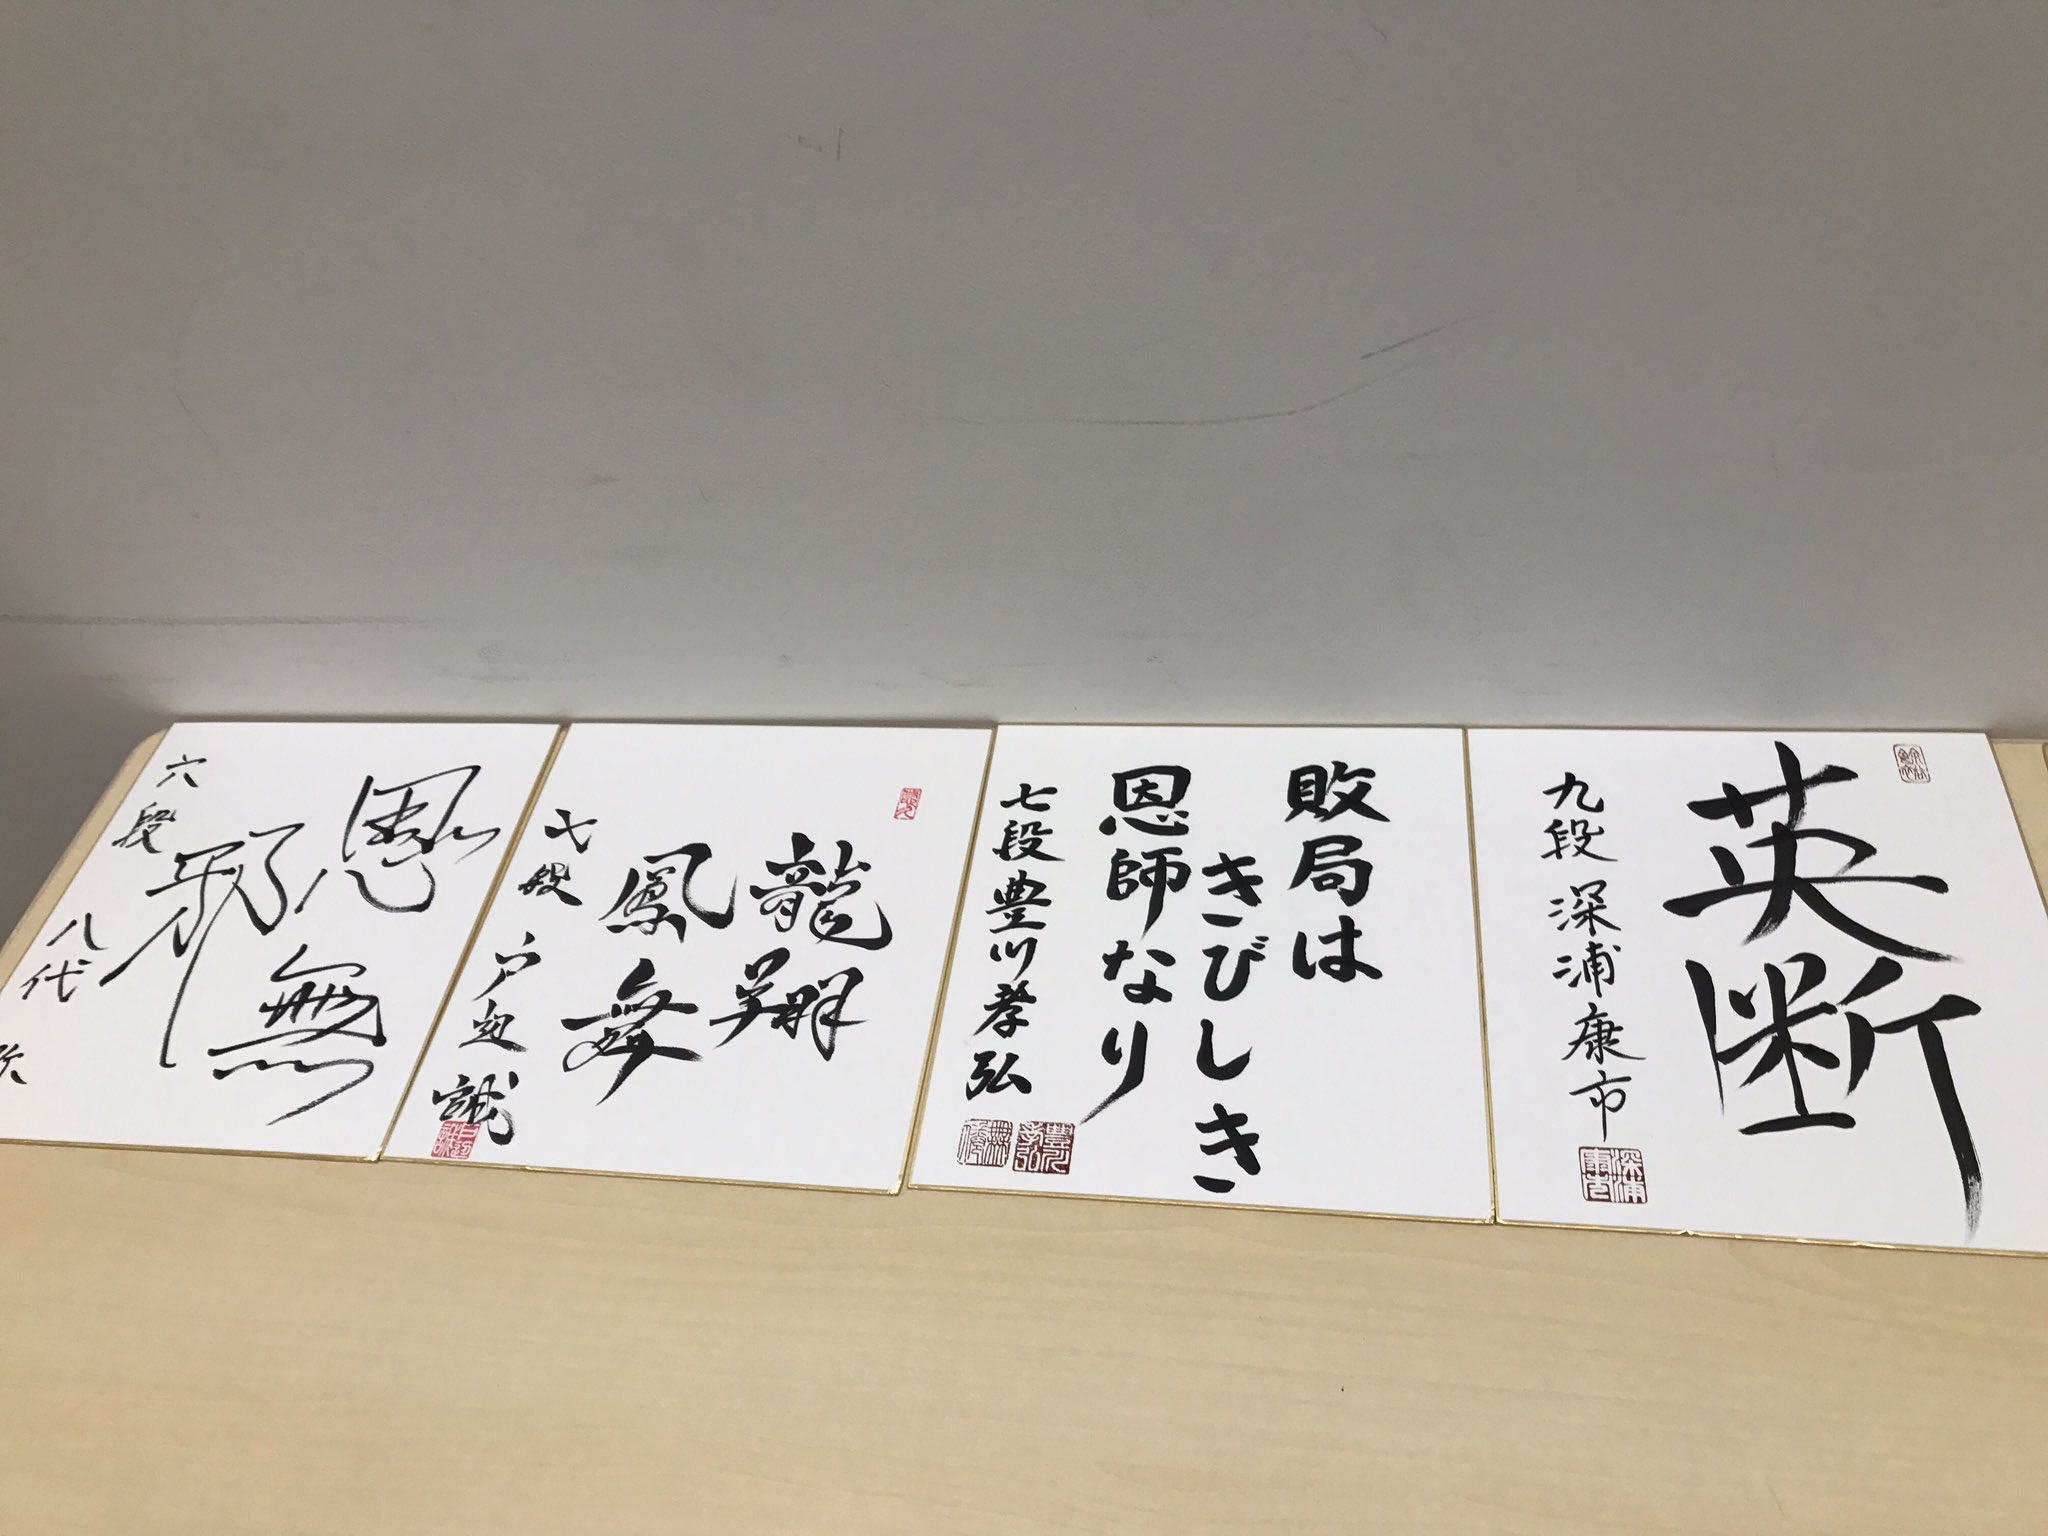 英断
九段 深浦康市
敗局は
きびしき
恩師なり
七段 豊川孝弘
龍翔
鳳舞
七段 戸辺 誠
思無
邪
六段 八代 弥